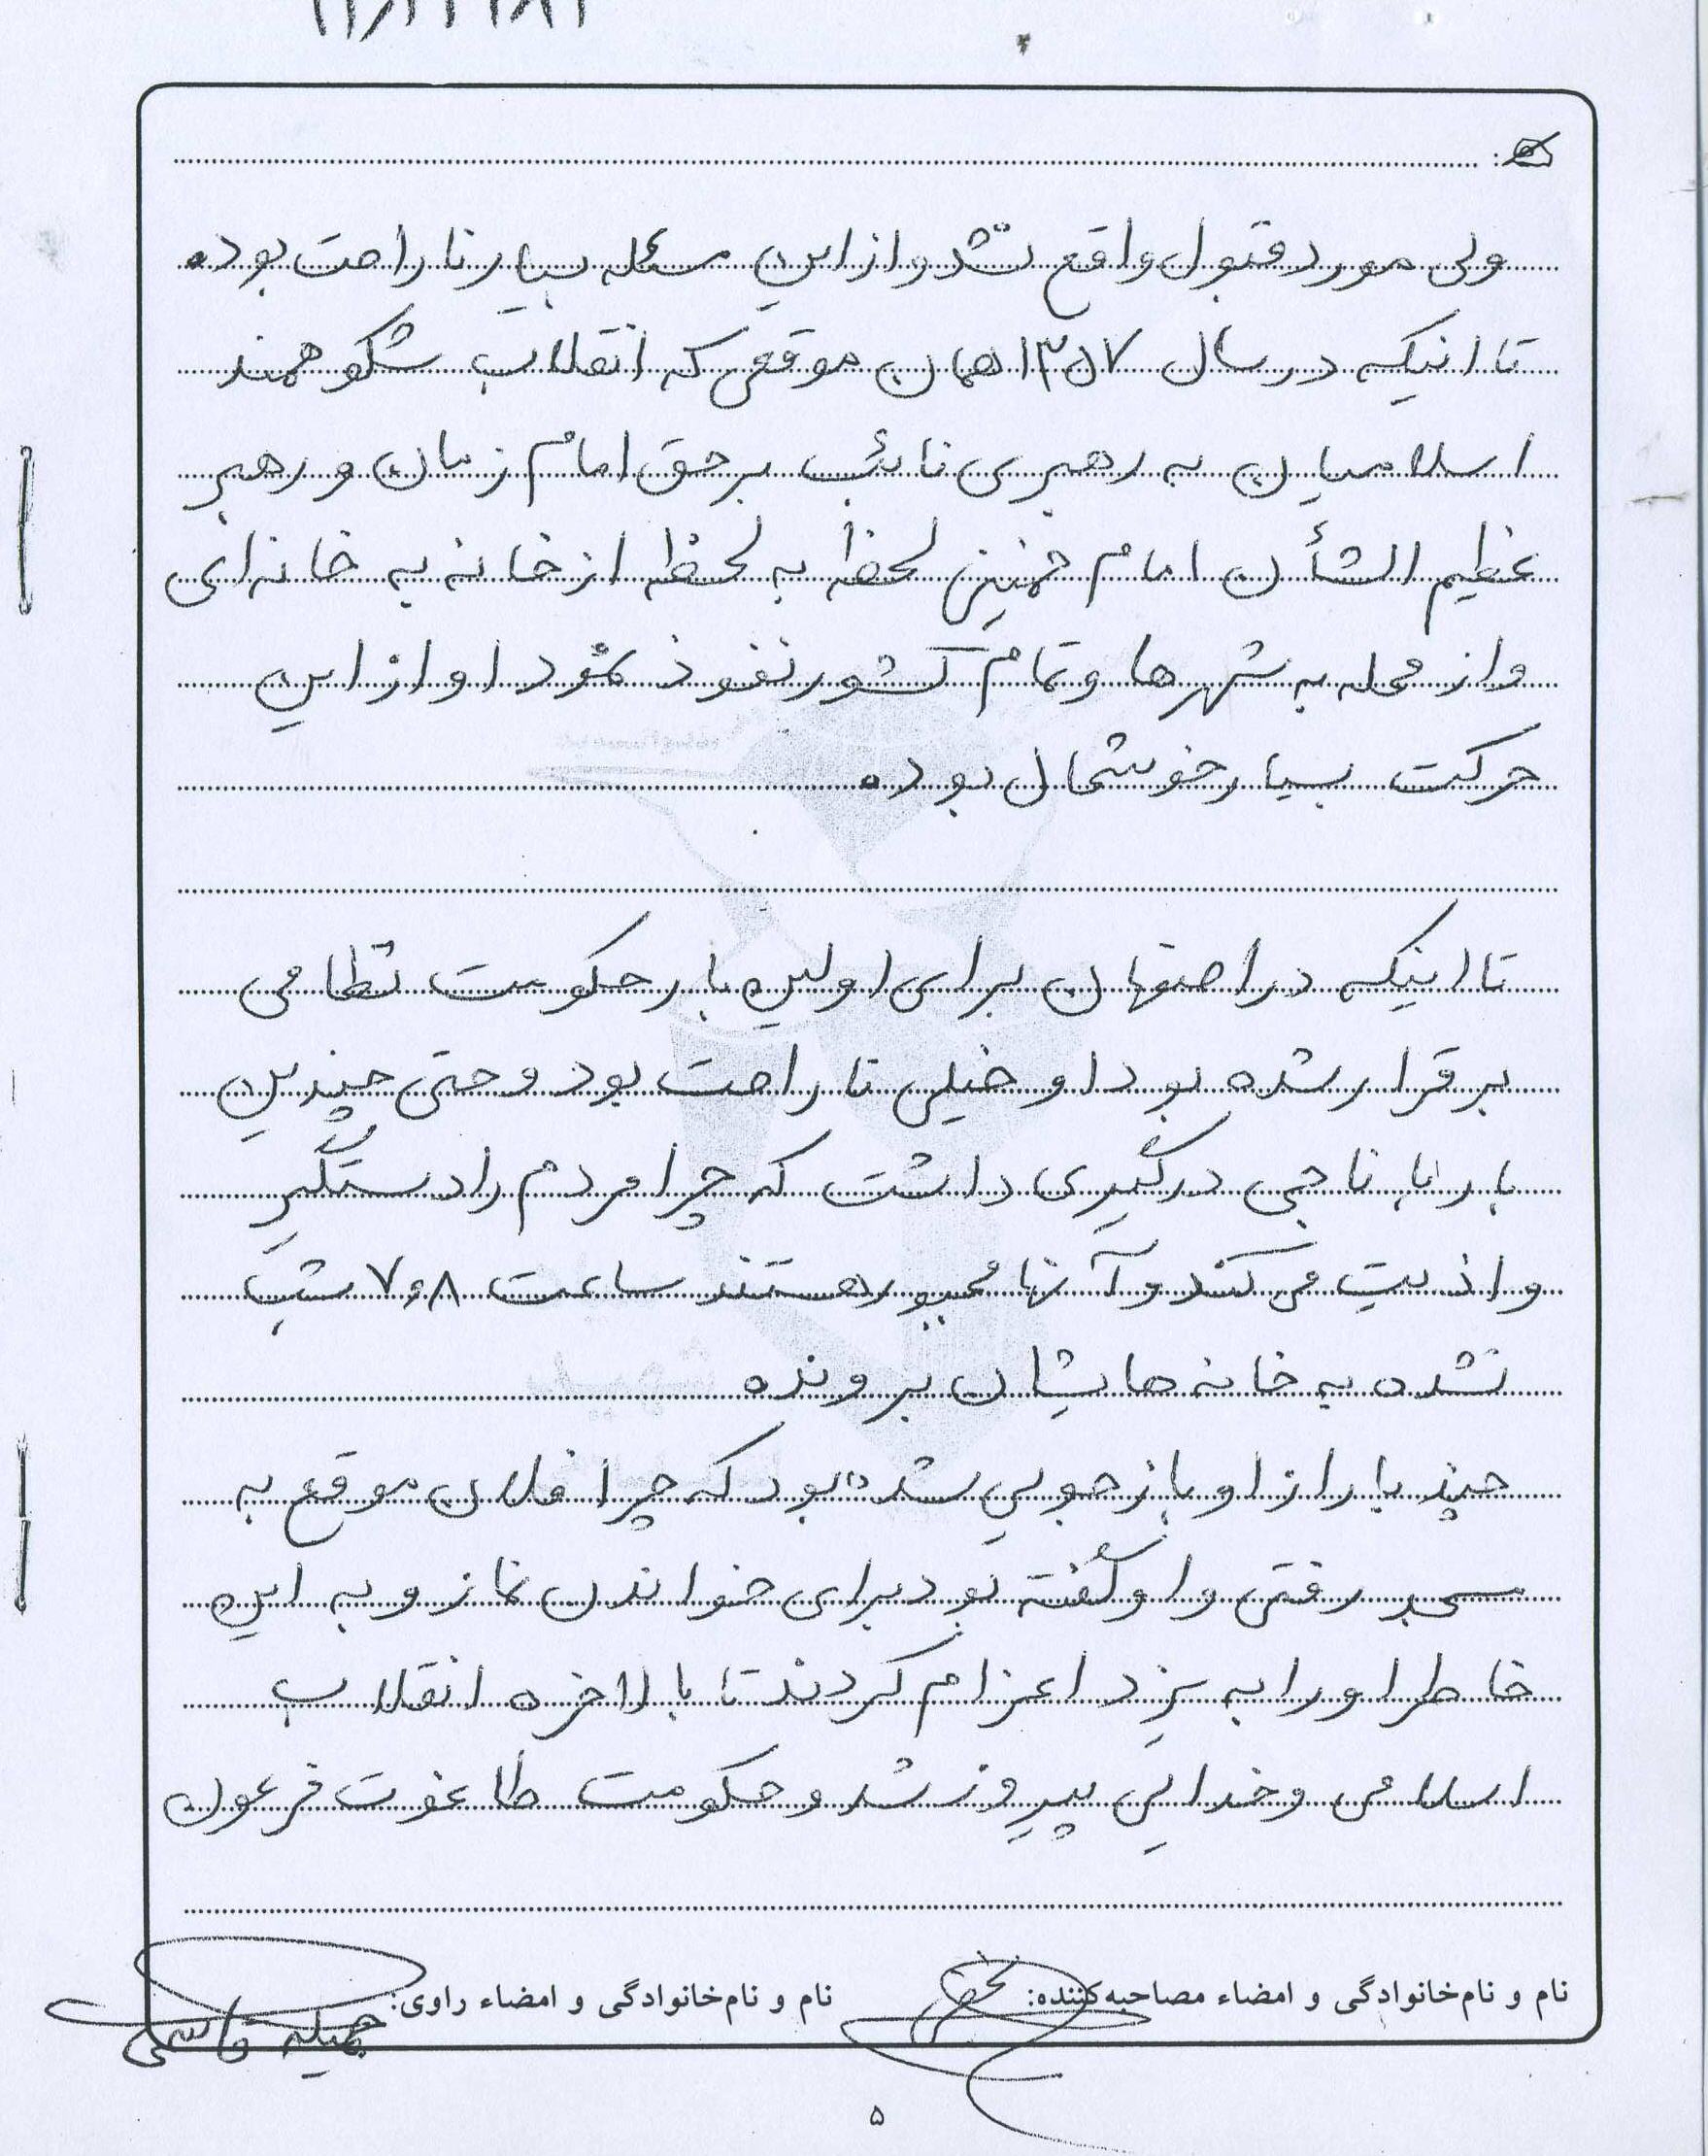 ولی مورد قبول واقع نشد و از این مسئله بسیار ناراحت بود.
تا اینکه در سال ۱۳۵۷ همان موقعی که انقلاب شکوهمند
اسلامیان به رهبری نائب بر حق امام زمان و رهبر
عظیم الشأن امام خمینی لحظه به لحظه از خانه به خانه ای
و از محله به شهرها و تمام کشور نفوذ نمود او از این
حرکت بسیار خوشحال بود.
تا اینکه در اصفهان برای اولین بار حکومت نظامی
برقرار شده بود او خیلی ناراحت بود و حتی چندین
بار با ناجی درگیری داشت که چرا مردم را دستگیر
و اذیت می کند و آنها مجبور هستند ساعت ۷و۸ شب
نشده به خانه هایشان بروند.
چند بار از او بازجویی شده بود که چرا فلان موقع به
مسجد رفتی و او گفته بود برای خواندن نماز و به این
خاطر او را به یزد اعزام کردند تا بالاخره انقلاب
اسلامی و خدایی پیروز شد و حکومت طاغوت فرعون
نام و نام‌خانوادگی و امضاء مصاحبه‌کننده:
نام و نام‌خانوادگی و امضاء راوی: جمیله قاسمی
۵